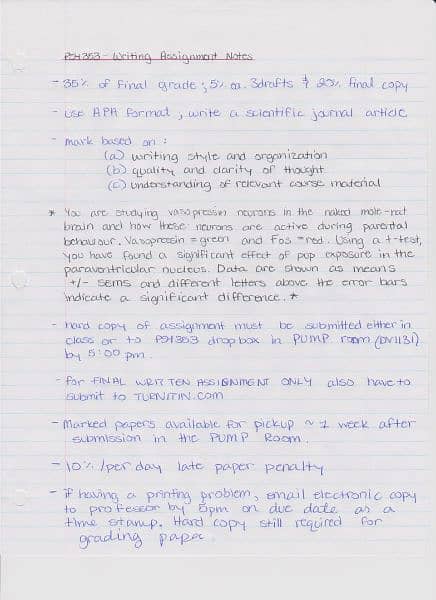 PSY353 - Writing Assignment Notes
- 35% of final grade; 5% ea. 3drafts & 20% final copy
- use APA format, write a scientific journal article
- mark based on:
(a) writing style and organization
(b) quality and clarity of thought
(c) understanding of relevant course material
* You are studying vasopressin neurons in the naked mole-rat
brain and how these neurons are active during parental
behaviour. Vasopressin = green and Fos = red. Using a t-test,
you have found a significant effect of pup exposure in the
paraventricular nucleus. Data are shown as means
+/- sems and different letters above the error bars
indicate a significant difference. *
- hard copy of assignment must be submitted either in
class or to PSY353 drop box in PUMP room (DV1131)
by 5:00 pm.
- for FINAL WRITTEN ASSIGNMENT ONLY also have to
submit to TURNITIN.com
- Marked papers available for pickup ~ 1 week after
submission in the PUMP Room.
- 10% /per day late paper penalty
- if having a printing problem, email electronic copy
to professor by 5pm on due date as a
time stamp. Hard copy still required for
grading paper.